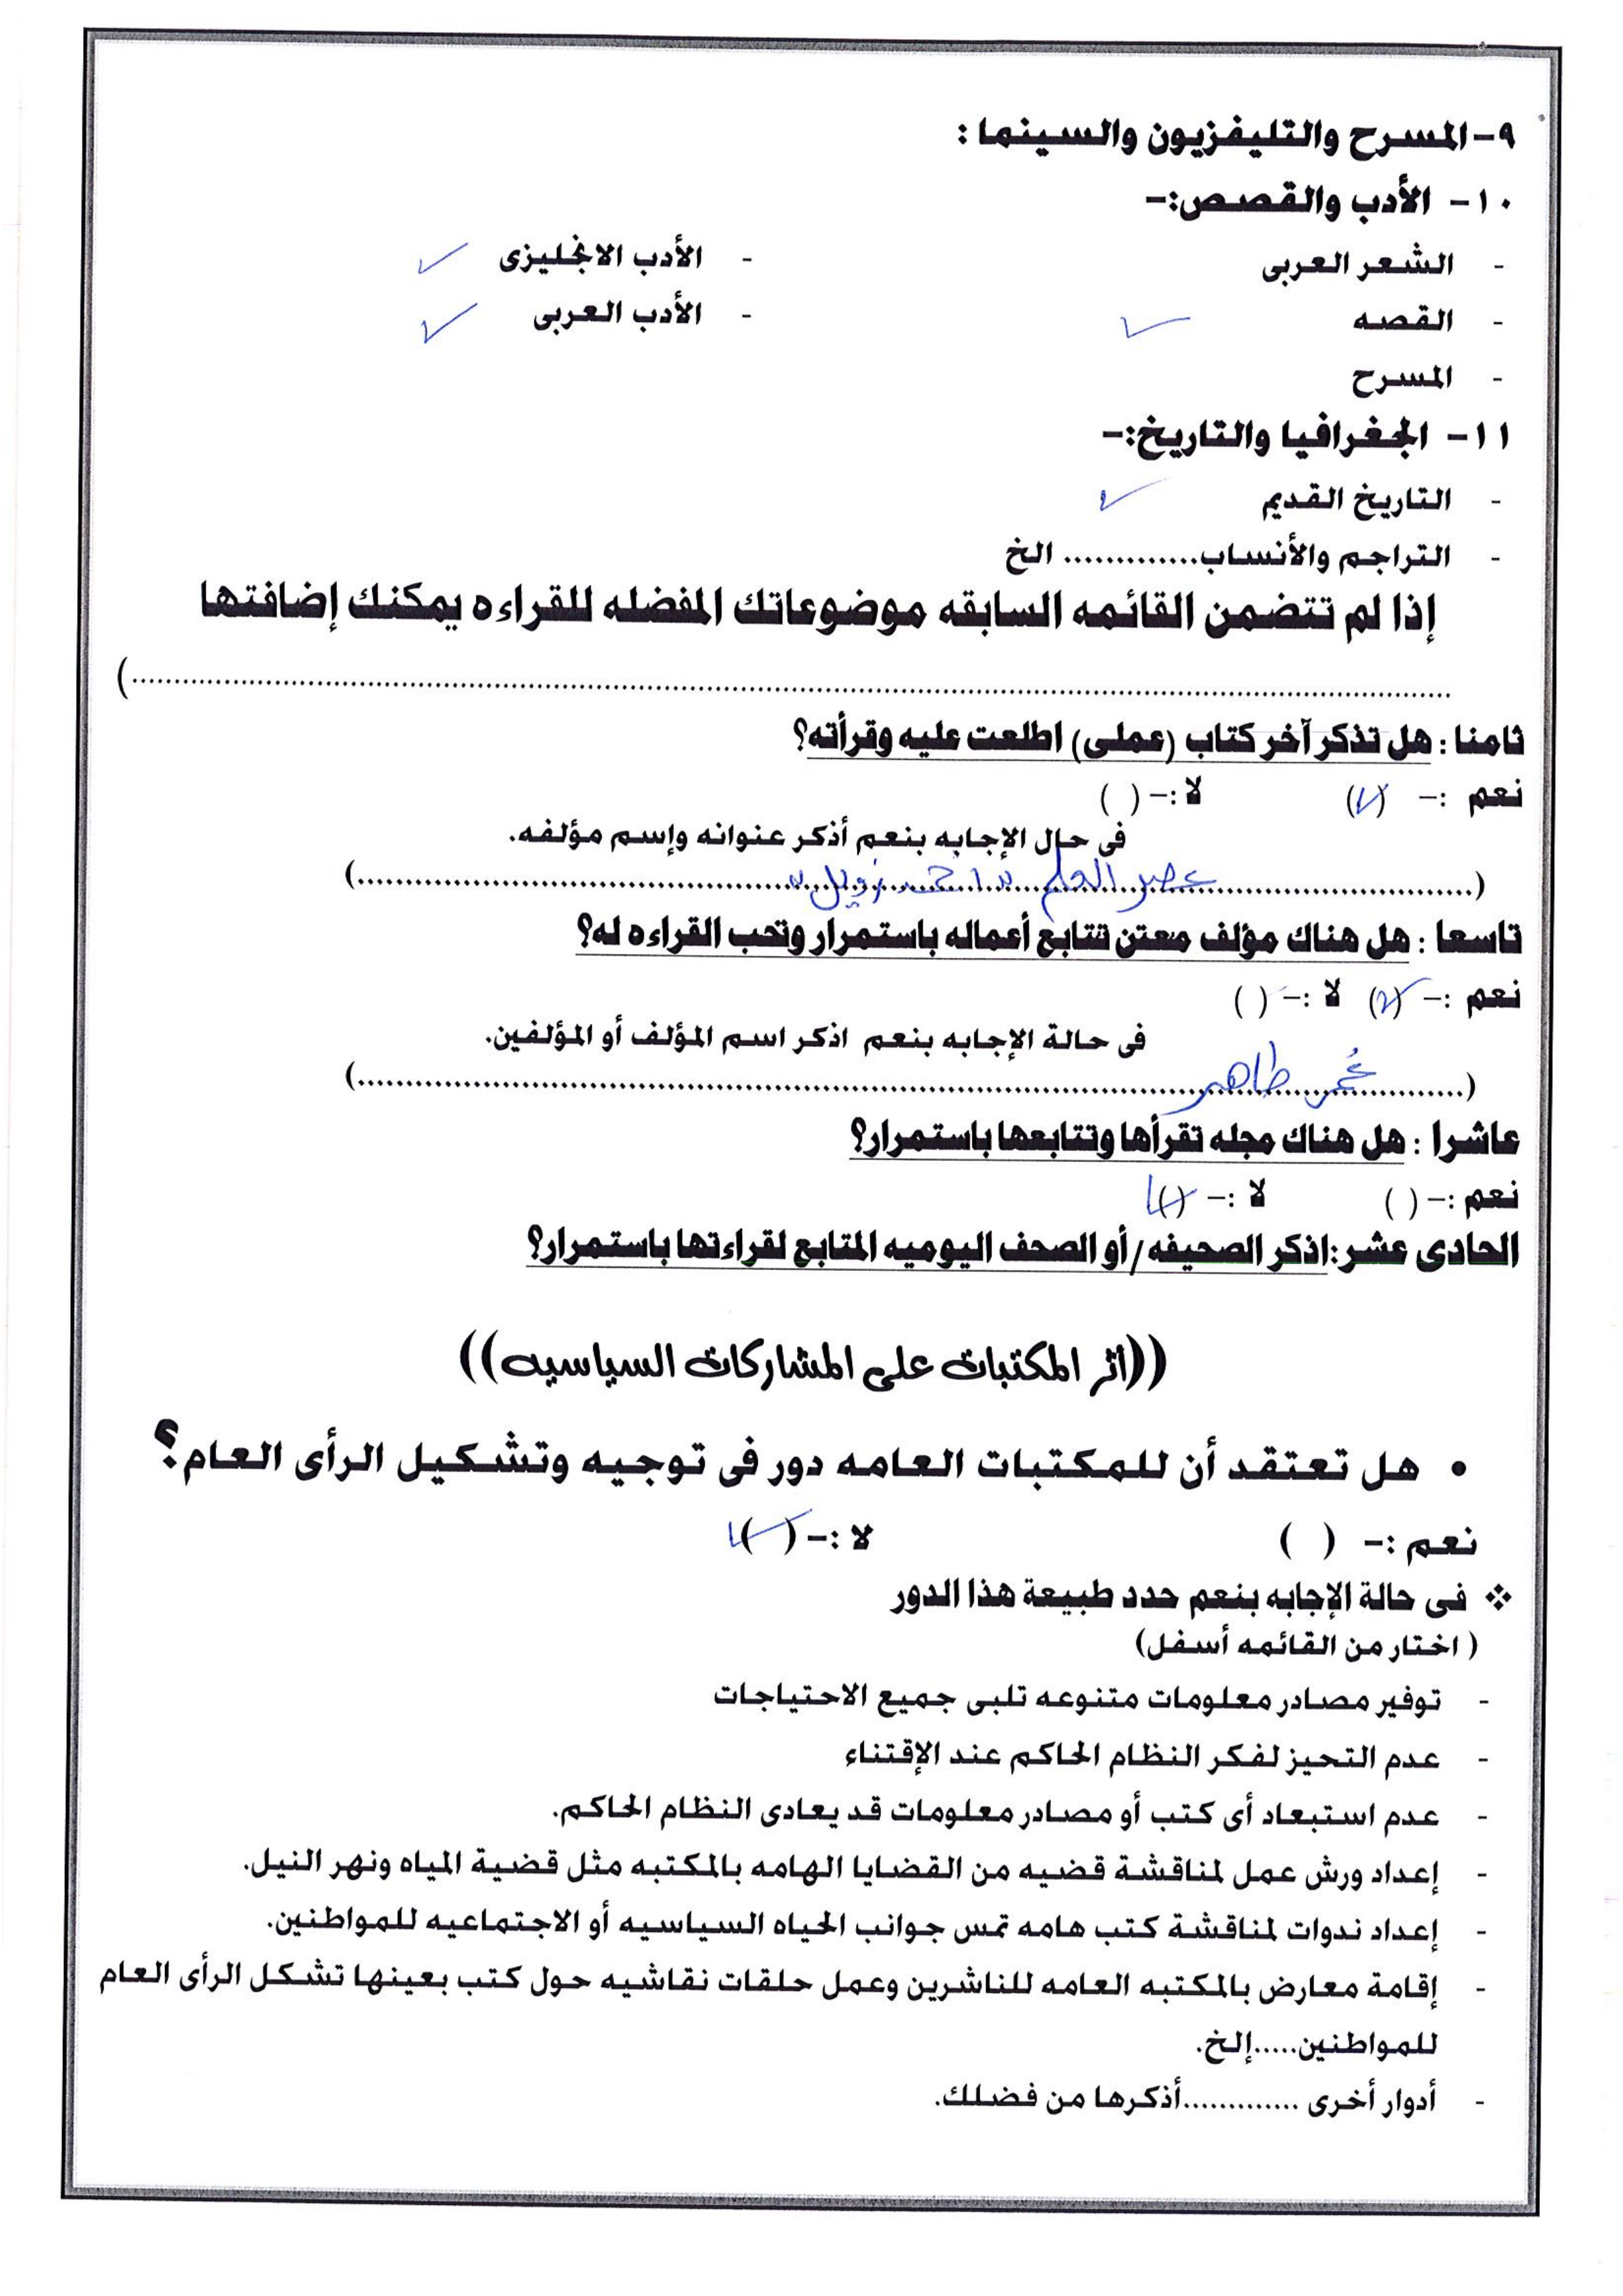 ٩- المسرح والتليفزيون والسينما :
١٠- الأدب والقصص:-
- الشعر العربى - الأدب الانجليزى ✓
- القصه ✓ - الأدب العربى ✓
- المسرح
١١- الجغرافيا والتاريخ:-
- التاريخ القديم ✓
- التراجم والأنساب............. الخ
إذا لم تتضمن القائمه السابقه موضوعاتك المفضله للقراءه يمكنك إضافتها
................................................................................)
ثامنا : هل تذكر آخر كتاب (عملى) اطلعت عليه وقرأته؟
نعم :- (✓) لا :- ( )
فى حال الإجابه بنعم أذكر عنوانه وإسم مؤلفه.
(........ عصر العلم " احمد زويل " ........)
تاسعا : هل هناك مؤلف معتن تتابع أعماله باستمرار وتحب القراءه له؟
نعم :- (✓) لا :- ( )
فى حالة الإجابه بنعم اذكر اسم المؤلف أو المؤلفين.
(........ عُمر طاهر ........)
عاشرا : هل هناك مجله تقرأها وتتابعها باستمرار؟
نعم :- ( ) لا :- (✓)
الحادى عشر:اذكر الصحيفه/أو الصحف اليوميه المتابع لقراءتها باستمرار؟
((أثر المكتبات على المشاركات السياسيه))
• هل تعتقد أن للمكتبات العامه دور فى توجيه وتشكيل الرأى العام؟
نعم :- ( ) لا :- (✓)
❖ فى حالة الإجابه بنعم حدد طبيعة هذا الدور
( اختار من القائمه أسفل)
- توفير مصادر معلومات متنوعه تلبى جميع الاحتياجات
- عدم التحيز لفكر النظام الحاكم عند الإقتناء
- عدم استبعاد أى كتب أو مصادر معلومات قد يعادى النظام الحاكم.
- إعداد ورش عمل لمناقشة قضيه من القضايا الهامه بالمكتبه مثل قضية المياه ونهر النيل.
- إعداد ندوات لمناقشة كتب هامه تمس جوانب الحياه السياسيه أو الاجتماعيه للمواطنين.
- إقامة معارض بالمكتبه العامه للناشرين وعمل حلقات نقاشيه حول كتب بعينها تشكل الرأى العام
للمواطنين.....إلخ.
- أدوار أخرى .............أذكرها من فضلك.